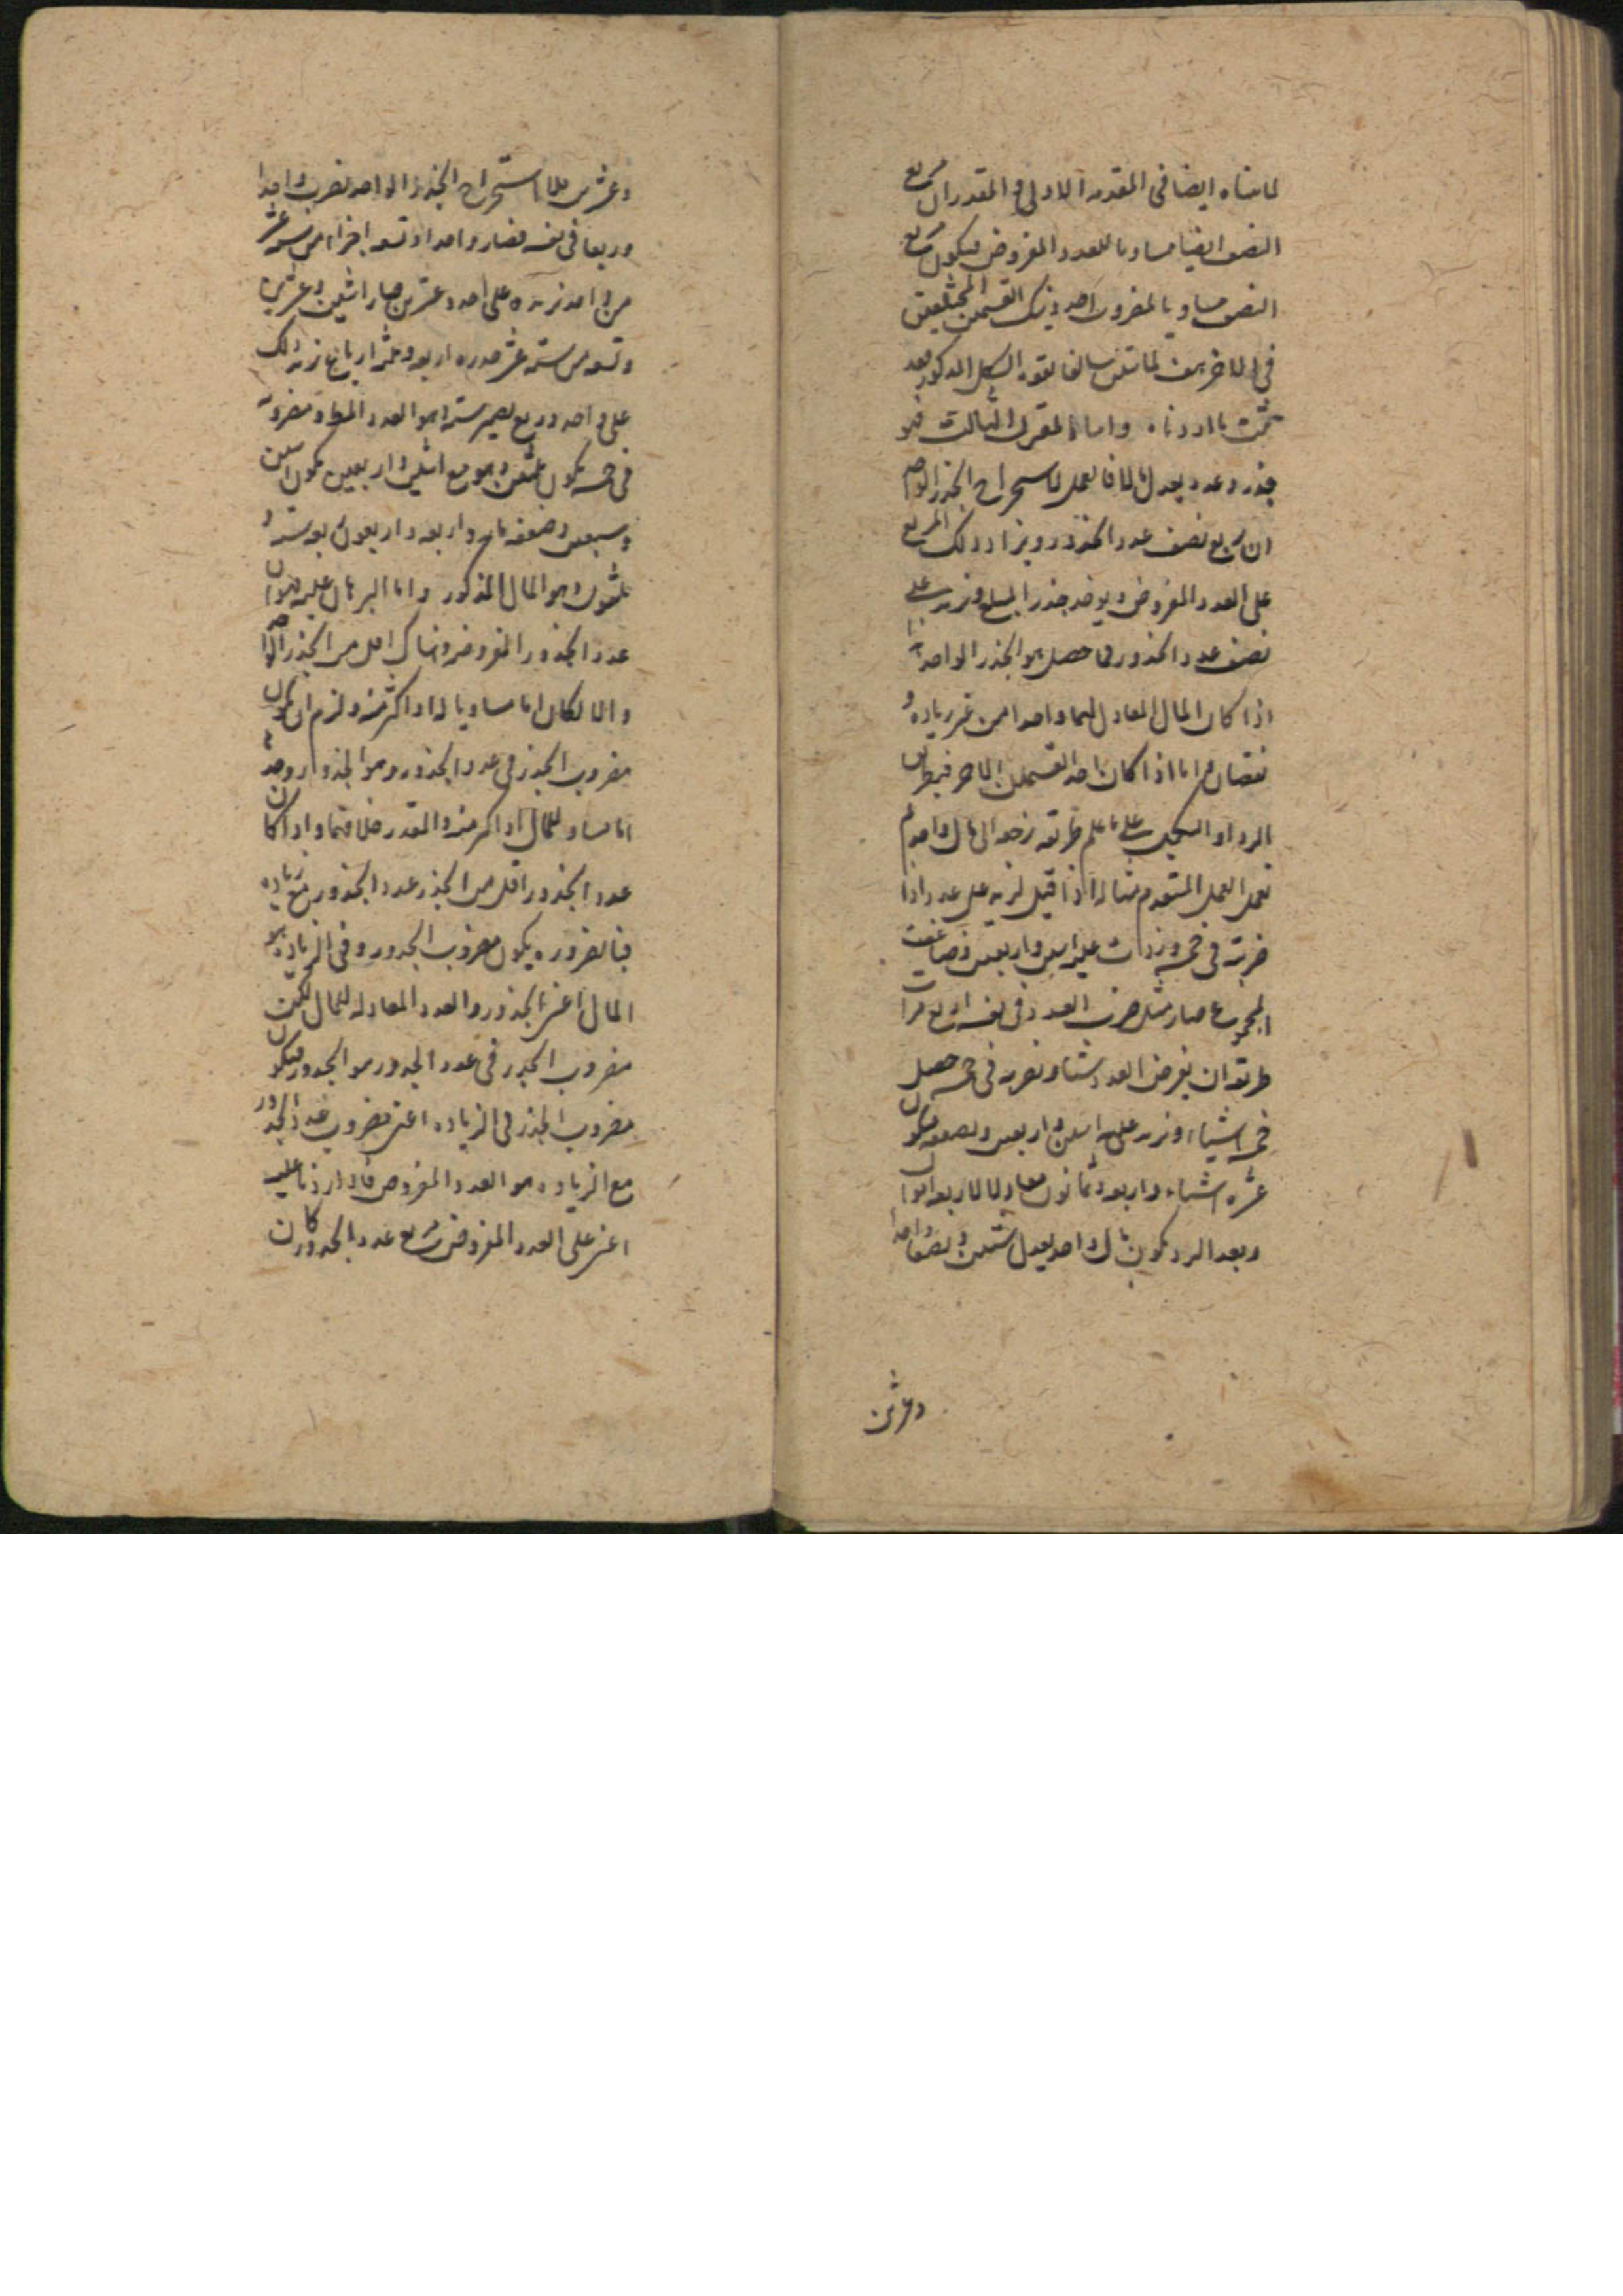 لما بيناه ايضا فى المقدمة الاولى والمقدر ان مربع
النصف ايضا مساويا للعدد المفروض فيكون مربع
النصف مساويا لمضروب احد ذينك القسمين المختلفين
فى الاخر هف لما تبين سالفا بقوة الشكل المذكور بعد
تحت ما اردناه واما المقترن الثالث فهو
جذر وعدد يعدل مالا فالعمل لاستخراج الجذر الواحد
ان يربع نصف عدد الجذور ويزاد ذلك المربع
على العدد المفروض ويوخذ جذر المبلغ ونزيد على
نصف عدد الجذور فما حصل هو الجذر الواحد هذا
اذا كان المال المعادل لهما واحدا من غير زيادة و
نقصان واما اذا كان احد القسمين الاخر فبطريق
الرد او التكميل على ما علم طريقه نرجع الى مال واحد ثم
نعمل العمل المتقدم مثاله اذا قيل نريد على عدد اذا
ضربته فى خمسة وزدت عليه اثنين واربعين وضاعفت
المجموع صار مثل ضرب العدد فى نفسه اربع مرات
طريقه ان نفرض العدد شيئا ونضربه فى خمسة حصل
خمسة اشياء ونزيد عليه اثنين واربعين ونضعفه فيكون
عشرة اشياء واربعة وثمانون معادلا لاربعة اموال
وبعد الرد يكون مال واحد يعدل شيئين ونصفا واحدا
وعشرين
وعشرين فلاستخراج الجذر الواحد نضرب واحدا
وربعا فى نفسه فصار واحدا وتسعة اجزاء من ستة عشر
من واحد نزيده على احد وعشرين صار اثنين وعشرين
وتسعة من ستة عشر جذره اربعة وثلثة ارباع نزيد ذلك
على واحد وربع يصير ستة هو العدد المط ومضروبه
فى خمسة يكون ثلثين وهو مع اثنين واربعين يكون اثنين
وسبعين وضعفه مائة واربعة واربعون ربعه ستة و
ثلثون وهو المال المذكور واما البرهان عليه فهو ان
عدد الجذور المفروضة هناك اقل من الجذر الواحد
والا لكان اما مساويا له او اكثر منه ولزم ان يكون
مضروب الجذر فى عدد الجذور وهو الجذور وحده
اما مساو للمال او اكثر منه والمقدر خلافهما واذا كان
عدد الجذور اقل من الجذر عدد الجذور مع زيادة
فبالضرورة يكون مضروب الجذور وفى الزيادة هو
المال اعنى الجذور والعدد المعادلة للمال لكن
مضروب الجذر فى عدد الجذور هو الجذور فيكون
مضروب الجذر فى الزيادة اعنى مضروب عدد الجذور
مع الزيادة هو العدد المفروض فاذا زدنا عليه
اعنى على العدد المفروض مربع عدد الجذور كان